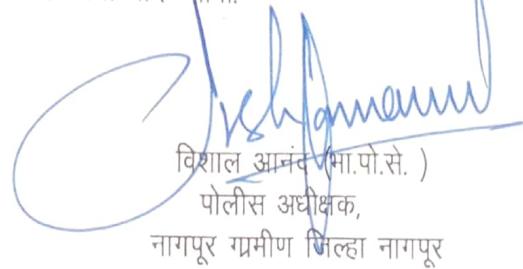 विशाल आनंद (भा.पो.से. )
पोलीस अधीक्षक,
नागपूर ग्रमीण जिल्हा नागपूर